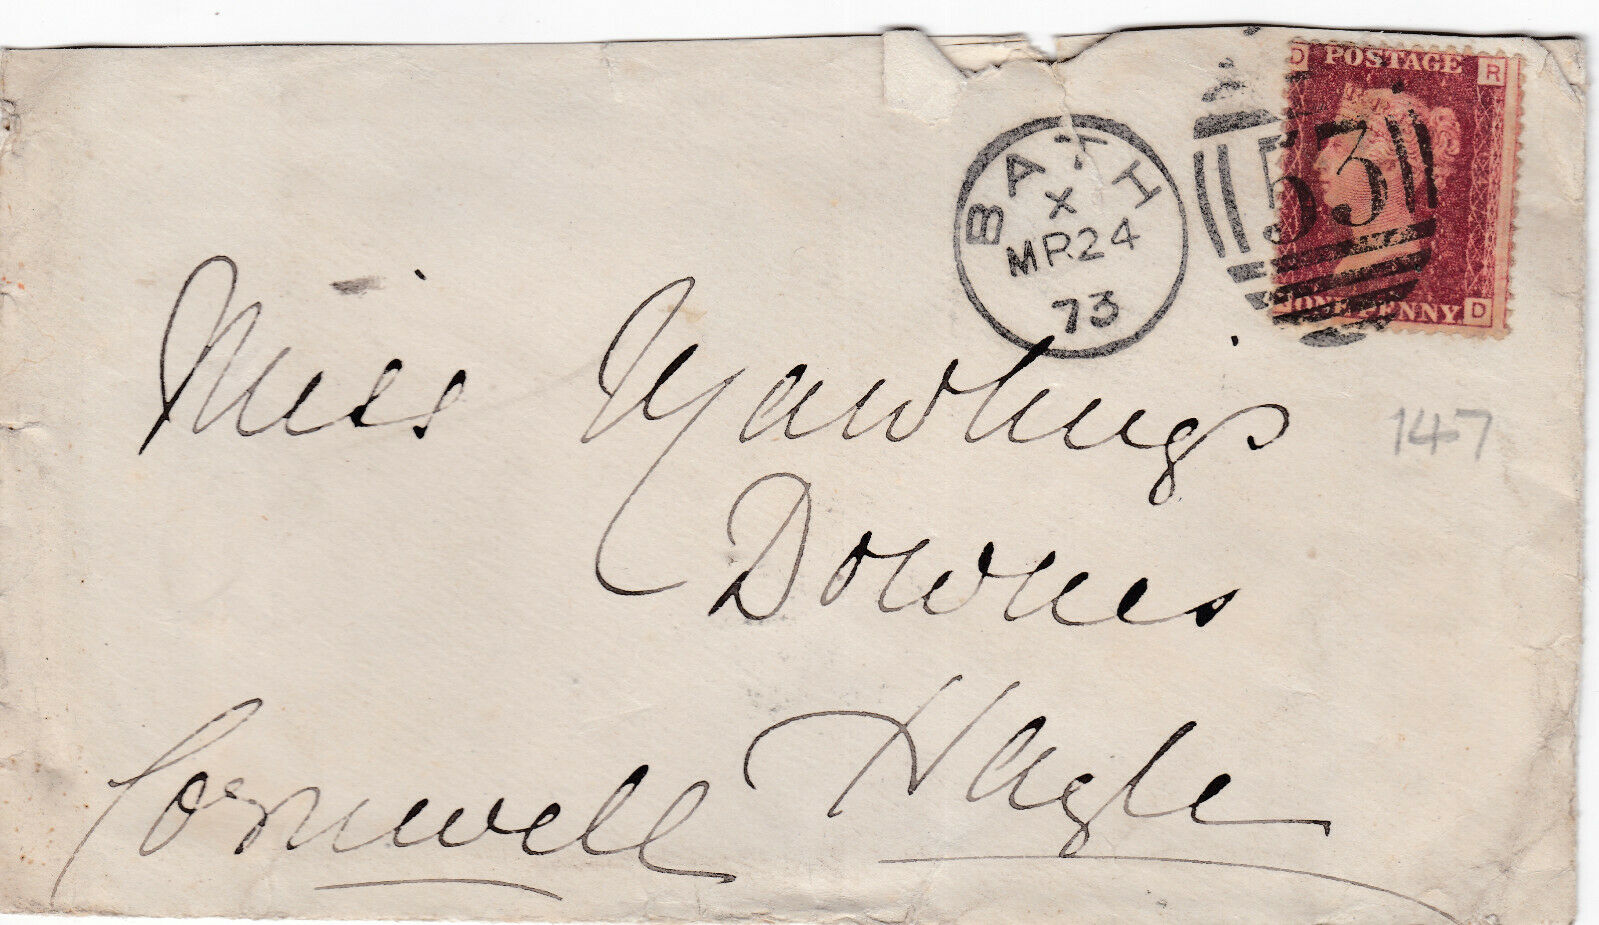 D POSTAGE R
53
ONE PENNY D
BATH
X
MR 24
73
147
Miss Rawlings
Downes
Hayle
Cornwall